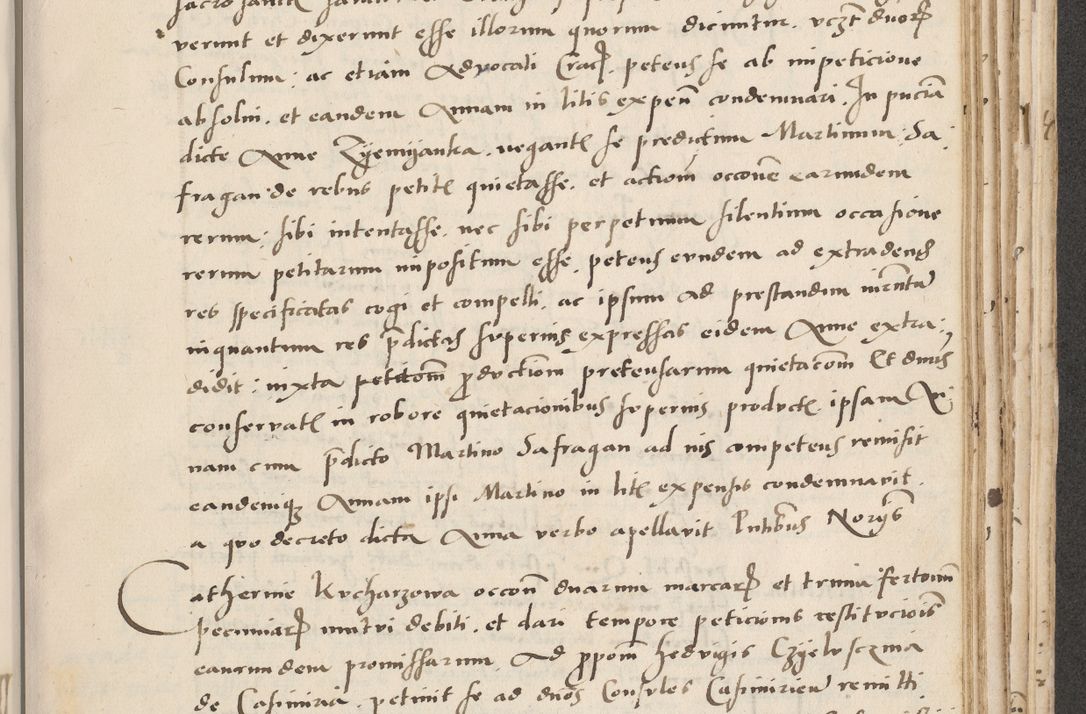 verunt et dixerunt esse illorum quorum dicuntur, vczt duorꝝ
Consulum; ac etiam Advocati Cracꝝ. petens se ab impeticione
absolui. et eandem Annam in litis expen̄ condemnari. In pn̄cia
dicte Anne Zyemyanka. negantꝭ se predictum Martinum Sa
fragan de rebus petitꝭ quietasse. et actiom̄ occone earumdem
rerum; sibi intentasse. nec sibi perpetuum silentium occasione
rerum petitarum impositum esse. petens eundem ad extradend
res specificatas cogi et compelli. ac ipsum ad prestandum
inquantum res p̄dictas superius expressas eidem Anne extra
didit; iuxta petitom̄ productiom̄ pretensarum quietacom̄ Et dn̄us
conseruatꝭ in robore quietacionibus superius productꝭ ipsam An
nam cum p̄dicto Martino Safragan ad ius competens remisit
eandemqꝫ Annam ipsi Martino in litꝭ expensis condemnavit.
a quo decreto dicta Anna verbo apellavit Pn̄tibus Norys
Catherine Kucharzowa occon̄ duarum marcarꝝ et trium fertonum
pecuniarꝝ mutui debiti. et dari tempore peticionis restituciois
earumdem promissarum. Ad ꝓpom̄ Hedvigis
de Casimiria. petiuit se ad dn̄os Consules Casimirien remitti